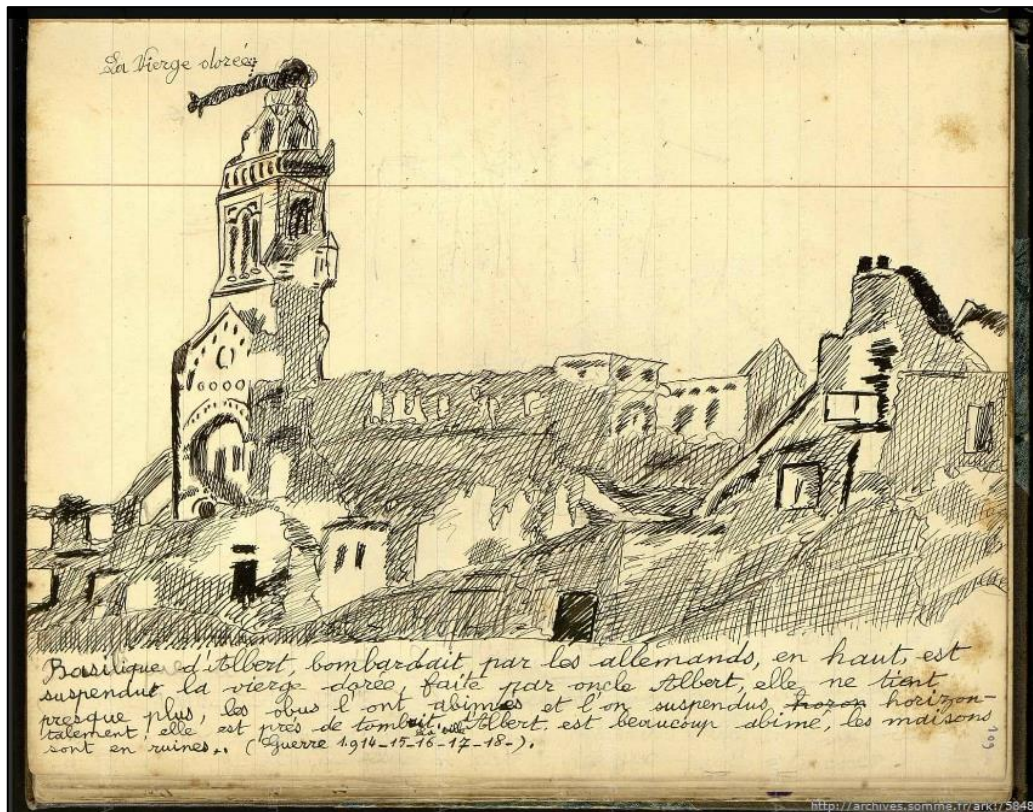 La Vierge dorée
Basilique d'Albert, bombardait par les allemands, en haut, est
suspendut la vierge dorée, faite par oncle Albert, elle ne tient
presque plus, les obus l'ont abimés et l'on suspendus horizon-
talement, elle est près de tombait. La ville d'Albert est beaucoup abimé, les maisons
sont en ruines.. (Guerre 1914-15-16-17-18-).
109
http://archives.somme.fr/ark:/58483